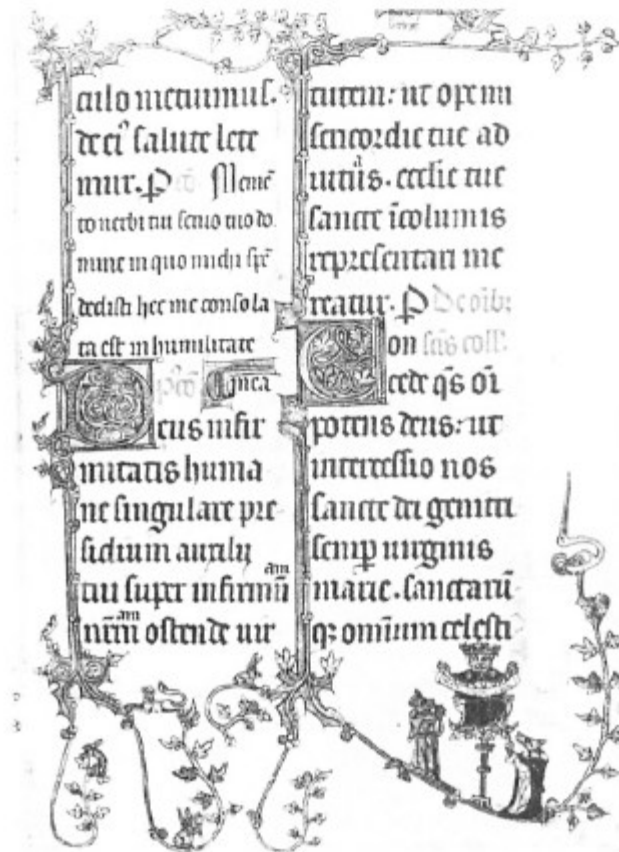 culo metuimus.
de ei⁹ salute lete
mur. P Meme
to uerbi tui seruo tuo do
mine in quo michi spē
dedisti hec me consola
ta est in humilitate
p⁹cō mea
Deus infir
mitatis huma
ne singulare pre
sidium auxilij
tui super infirmū am
nr̄m am ostende uir
tutem: ut ope mi
sericordie tue ad
iutus a. ecclie tue
sancte īcolumis
representari me
reatur. P De oīb;
Con scīs coll.
cede qs̄ oī
potens deus: ut
intercessio nos
sancte dei genitri
semp uirginis
marie. sanctarū
q; omnium celesti